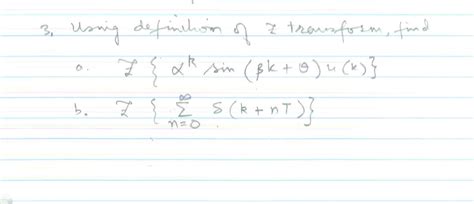 3. Using definition of Z transform, find
a. Z { α^k sin (βk + θ) u(k)}
b. Z { ∞ Σ n=0 δ(k + nT)}